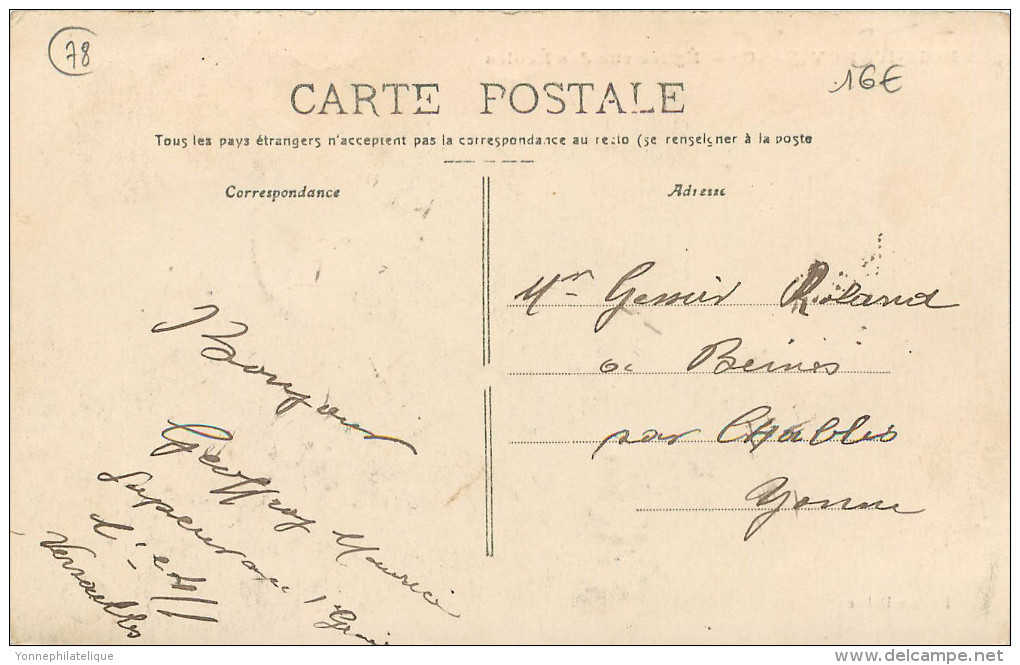 78
16€
CARTE POSTALE
Tous les pays étrangers n'acceptent pas la correspondance au recto (se renseigner à la poste
Correspondance
Adresse
Mr Roland
à Beines
par Chablis
Yonne
Bonjour
Geoffroy Maurice
Sapeur au 1
Versailles
Yonnephilatelique
delcampe.net